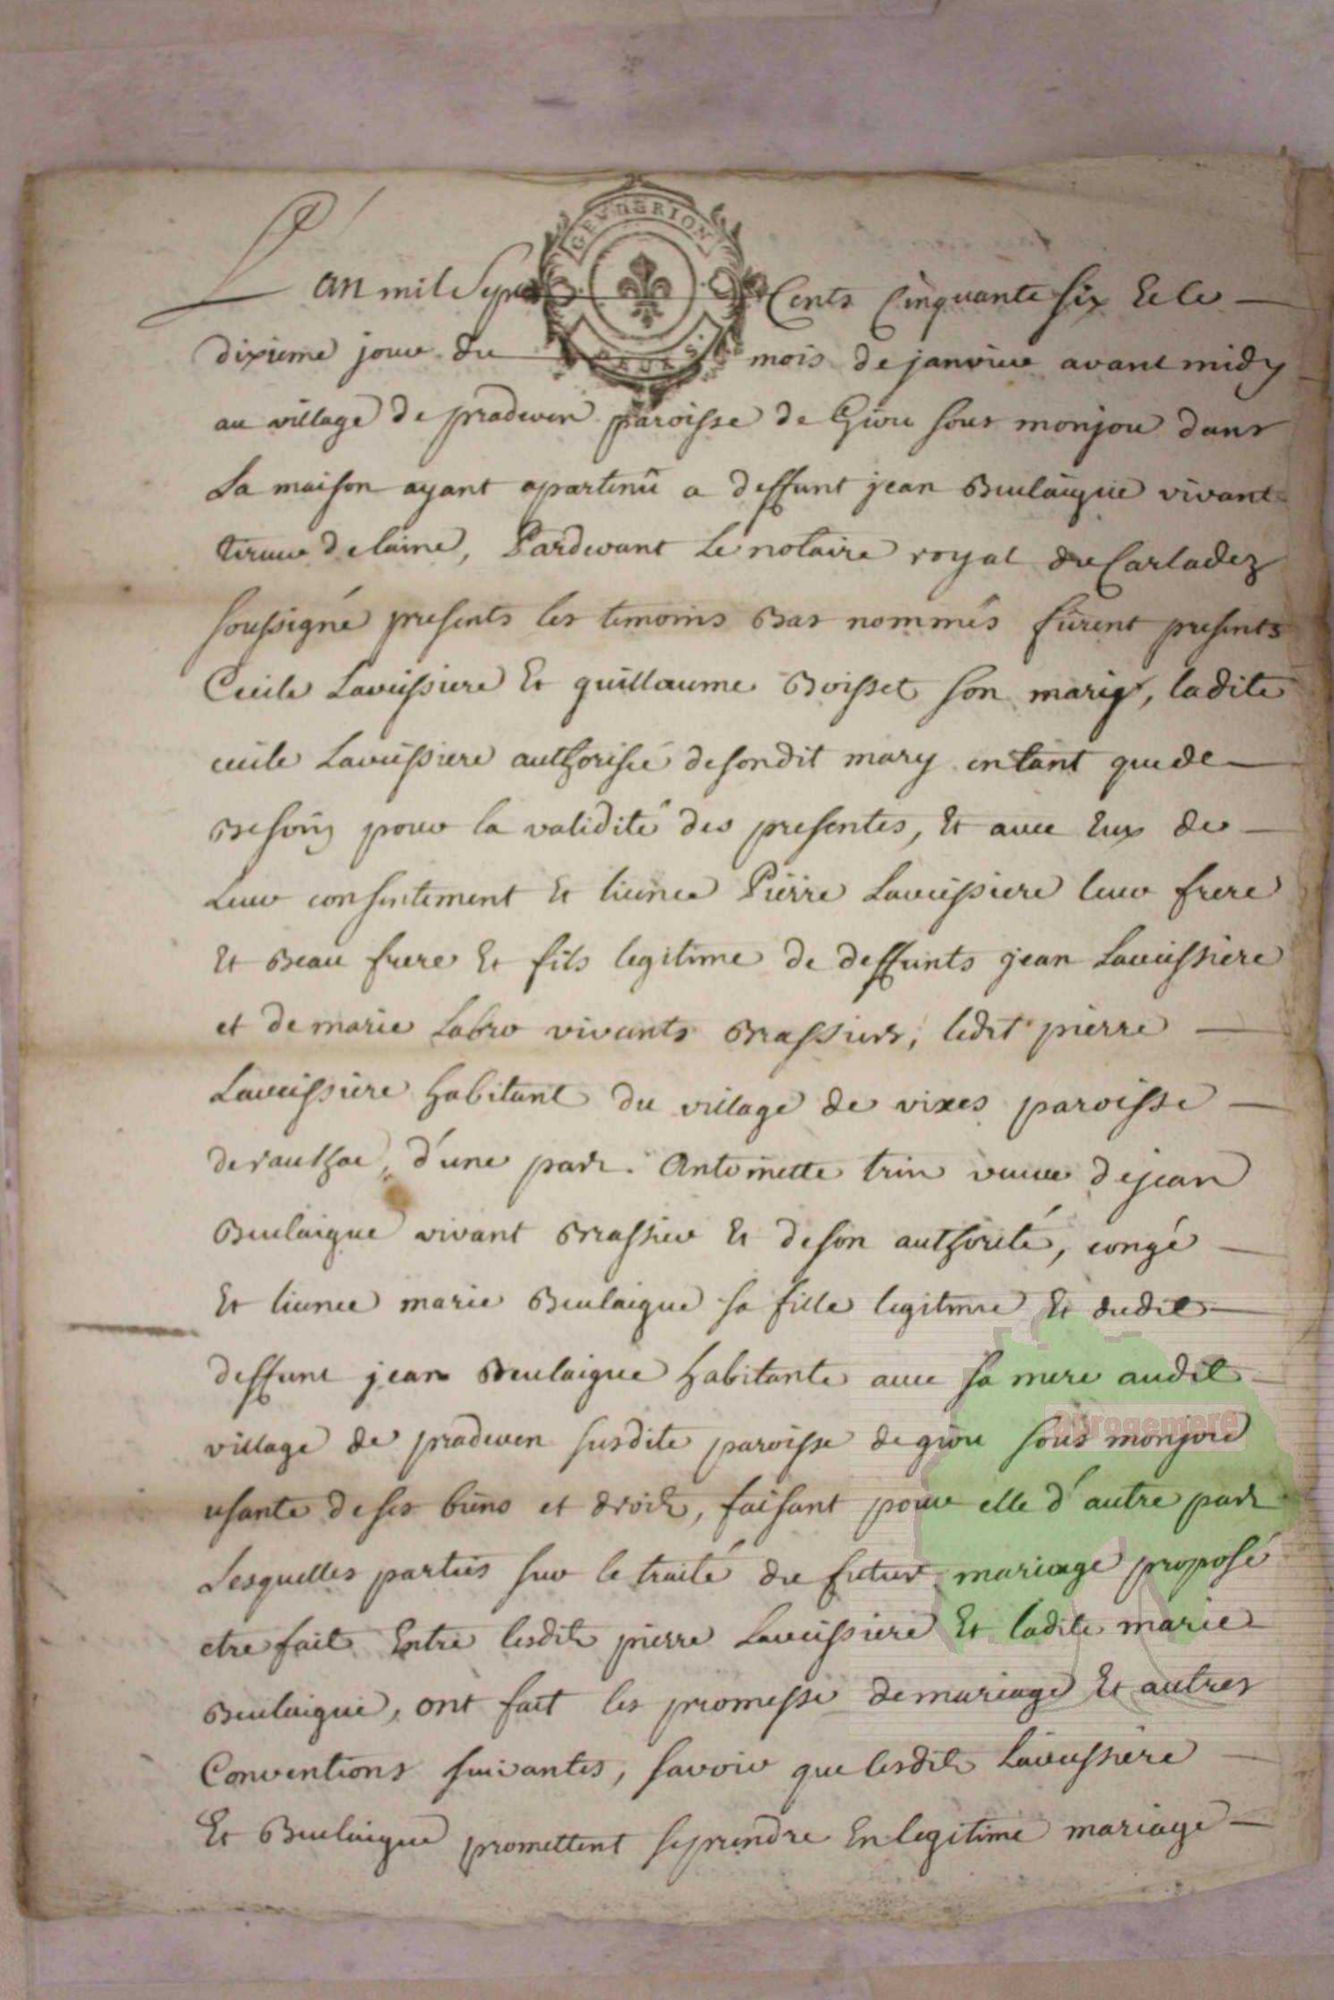 GEN. DE RION
L'an mil Sept Cents Cinquante six Et le
dixieme jour du mois de janvier avant midy
au village de pradeven paroisse de Giou sous monjou dans
La maison ayant apartenû a deffunt jean Beulaigue vivant
tireur de laine, Pardevant Le notaire royal du Carladez
soussigné presents les temoins Bas nommés fürent presents
Cecile Laveissiere Et guillaume Boisset son mary, ladite
cecile Laveissiere authorisée desondit mary entant que de
Besoin pour la validité des presentes, Et avec Eux de
Leur consentement Et licence Pierre Laveissiere leur frere
Et Beau frere Et fils legitime de deffunts jean Laveissiere
et de marie Labro vivants Brassiers, ledit pierre
Laveissiere habitant du village de vixes paroisse
de raulhac, d'une part. Antoinette trin veuve de jean
Beulaigue vivant Brassier Et de son authorité, congé
Et licence marie Beulaigue sa fille legitime Et dudit
deffunt jean Beulaigue habitante avec sa mere audit
village de pradeven susdite paroisse de giou sous monjou
usante de ses biens et droits, faisant pour elle d'autre part
Lesquelles parties sur le traité du futur mariage proposé
etre fait Entre lesdits pierre Laveissiere Et ladite marie
Beulaigue, ont fait les promesse de mariage Et autres
Conventions suivantes, savoir que lesdits Laveissiere
Et Beulaigue promettent se prendre En legitime mariage
auvrogemere